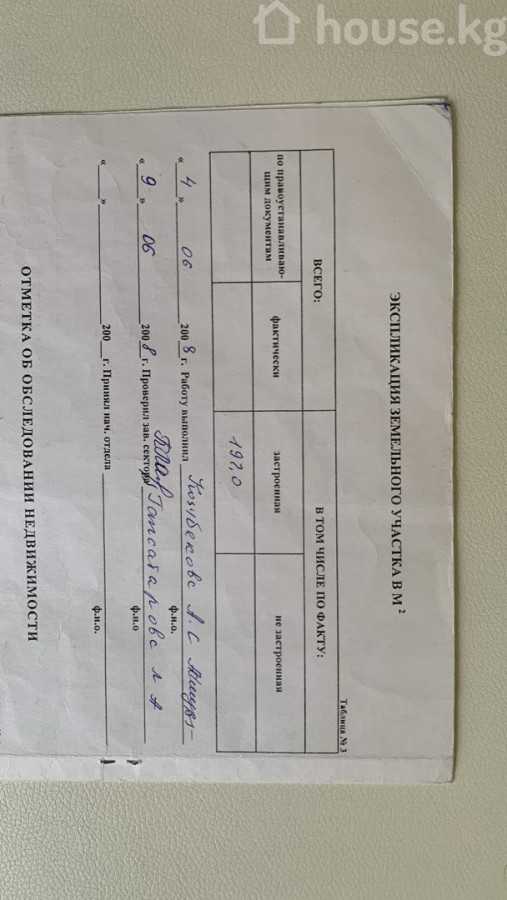 house.kg
ЭКСПЛИКАЦИЯ ЗЕМЕЛЬНОГО УЧАСТКА В М 2
Таблица № 3
ВСЕГО:
В ТОМ ЧИСЛЕ ПО ФАКТУ:
по правоустанавливаю-
щим документам
фактически
застроенная
не застроенная
197.0
« 4 » 06 200 8 г. Работу выполнил Козубекова А. С
ф.и.о.
« 9 » 06 200 8 г. Проверил зав. сектора
ф.и.о
« » 200 г. Принял нач. отдела
ф.и.о.
ОТМЕТКА ОБ ОБСЛЕДОВАНИИ НЕДВИЖИМОСТИ